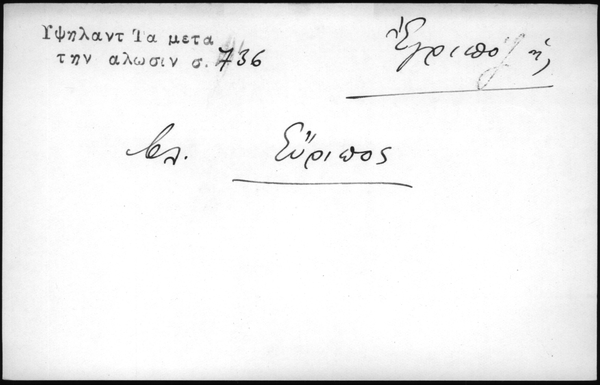 Υψηλαντ Τα μετα
την αλωσιν σ. 736
Ἔγριπο ἡ,
βλ. Εὔριπος